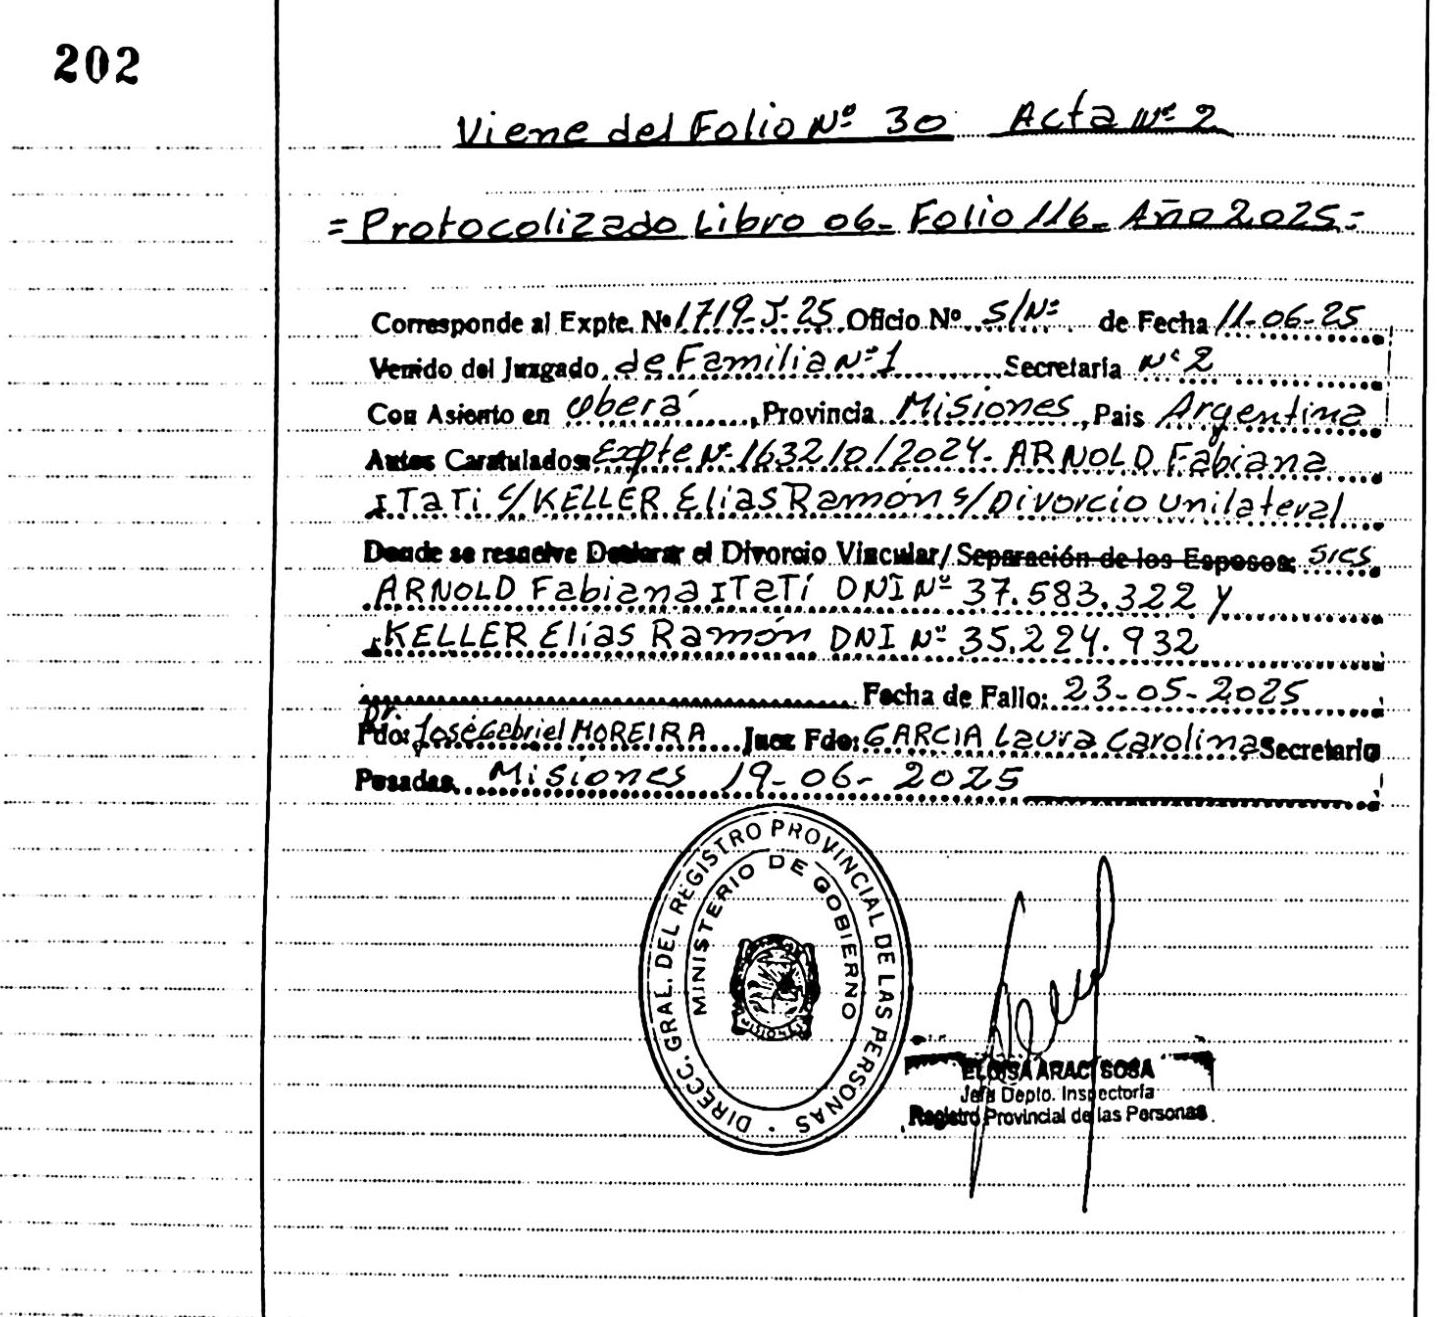 202
Viene del Folio Nº 30 Acta Nº 2
= Protocolizado Libro 06_ Folio 116_ Año 2025.=
Corresponde al Expte. Nº 1719-J-25 Oficio Nº S/Nº de Fecha 11-06-25
Venido del Juzgado de Familia Nº 1 Secretaria Nº 2
Con Asiento en Oberá, Provincia Misiones, Pais Argentina
Autos Caratulados: Expte Nº 163210/2024. ARNOLD Fabiana
ITaTí c/ KELLER Elías Ramón s/ Divorcio Unilateral
Donde se resuelve Declarar el Divorcio Vincular/ Separación de los Esposos: Sres
ARNOLD Fabiana ITaTí DNI Nº 37.583.322 y
KELLER Elías Ramón DNI Nº 35.224.932
Fecha de Fallo: 23-05-2025
Fdo: Dr. José Gabriel MOREIRA Juez Fdo: GARCIA Laura Carolina Secretario
Posadas, Misiones 19-06-2025
DIRECC. GRAL. DEL REGISTRO PROVINCIAL DE LAS PERSONAS
MINISTERIO DE GOBIERNO
MISIONES
ELOISA ARAC SOSA
Jefa Depto. Inspectoría
Registro Provincial de las Personas